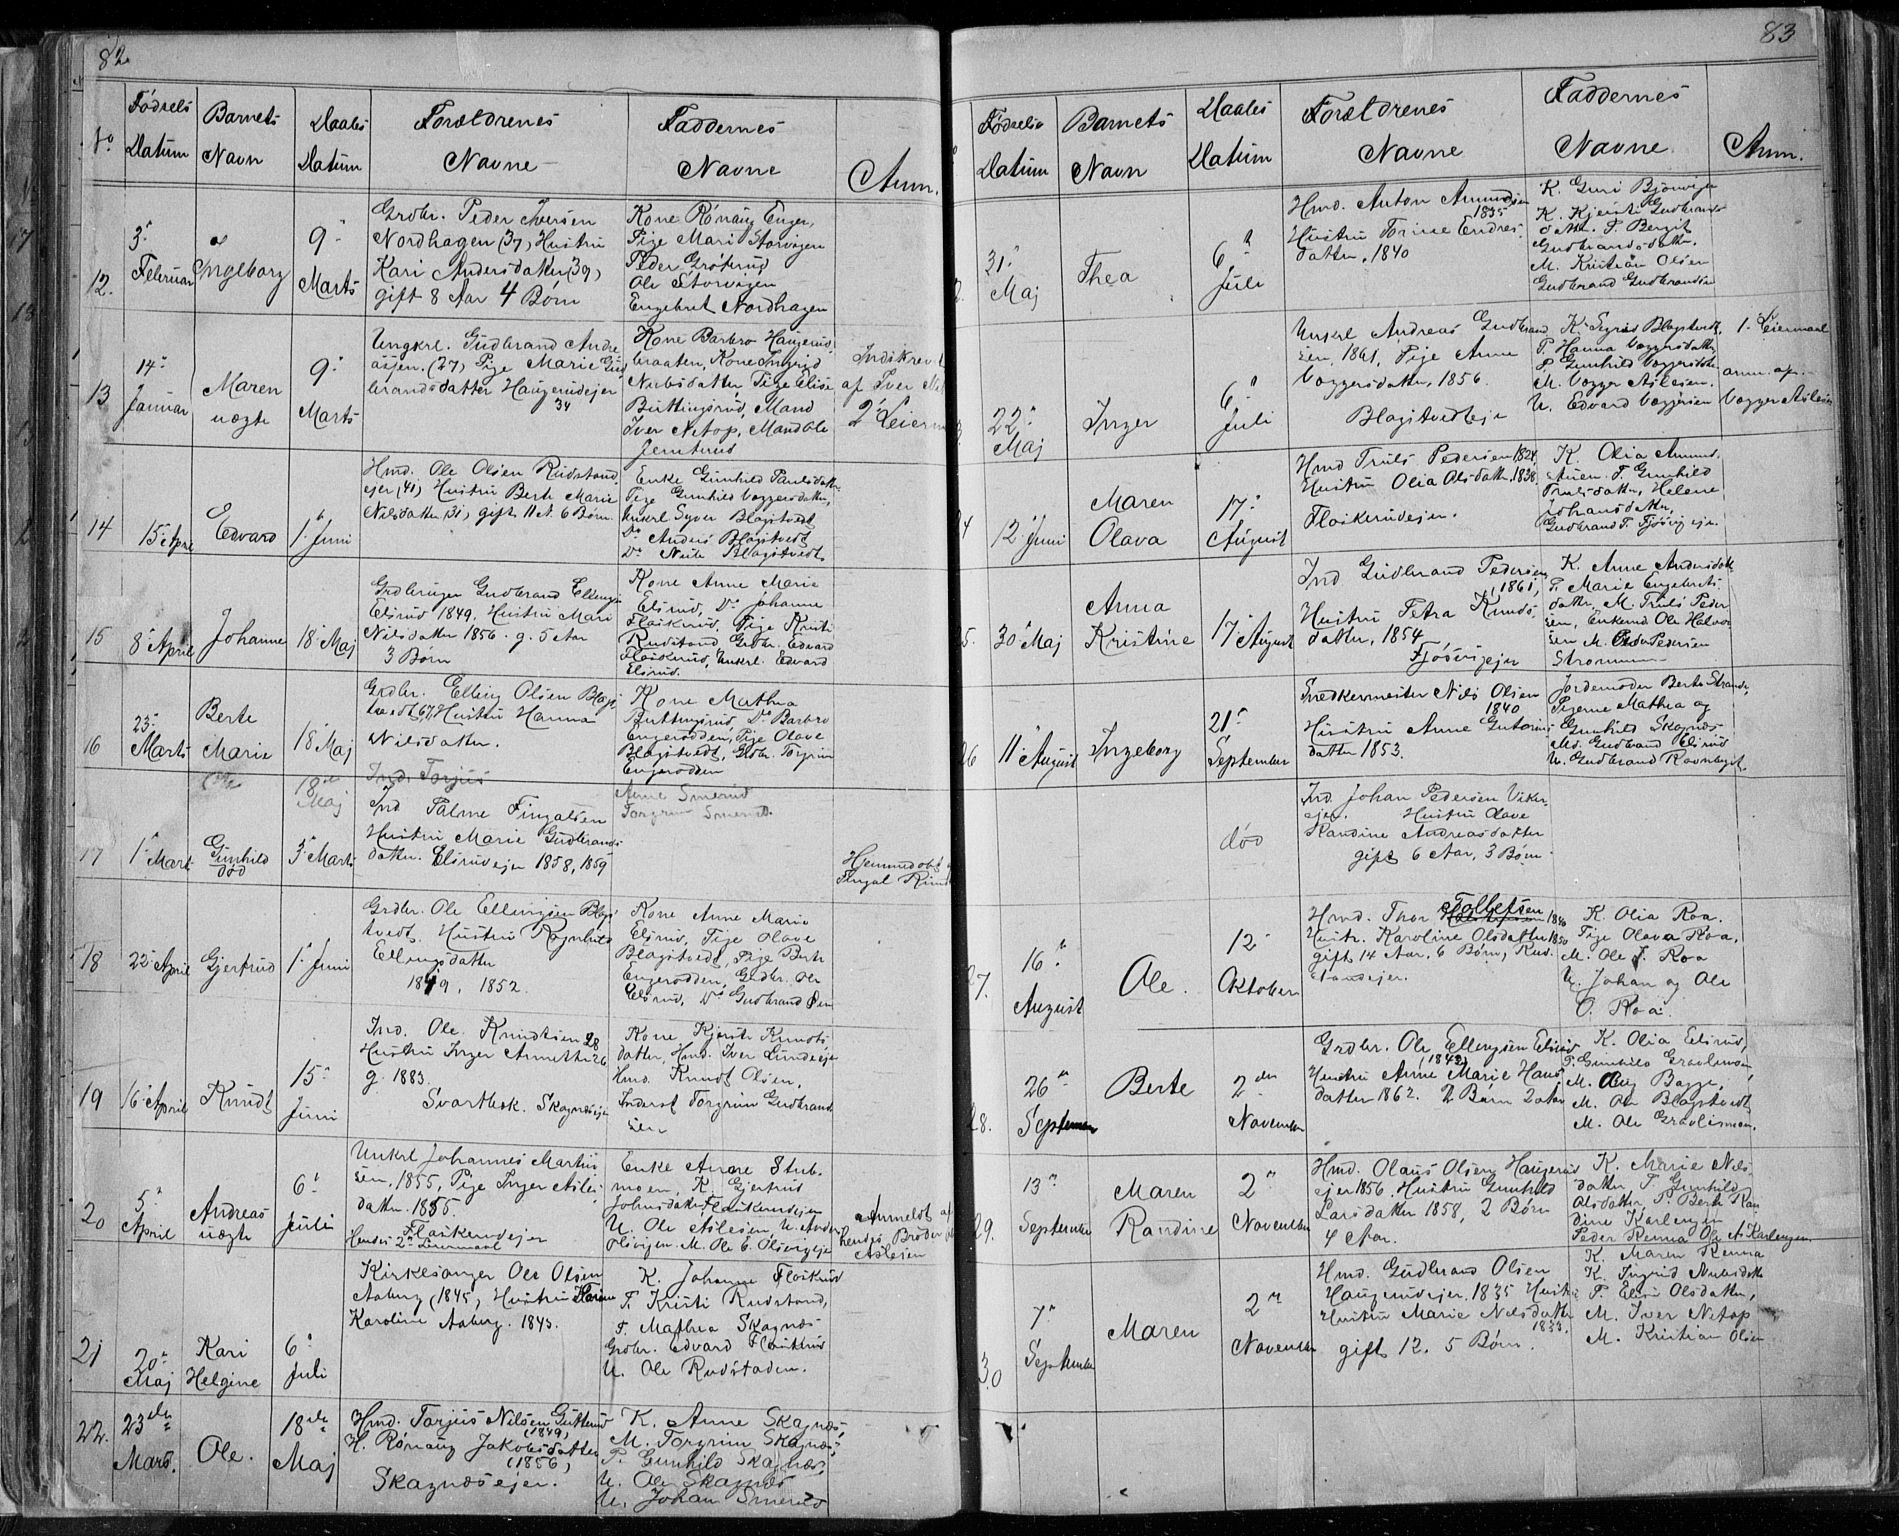 82
No
Fødsels Datum
Barnets Navn
Daabs Datum
Forældrenes Navne
Faddernes Navne
Anm.
12.
3 Februar
Ingeborg
9 Marts
Grdbr. Peder Iversen
Nordhagen (37) Hustru
Kari Andersdatter (39)
gift 8 Aar 4 Børn
Kone Rønaug Enger,
Pige Mari Storvigen
Peder Grøterud
Ole Storvigen
Engebret Nordhagen
13
14 Januar
Maren
uægte
9 Marts
Ungkrl. Gudbrand Andre
assen. (27) Pige Marie Gud
brandsdatter Haugerudejer
34
Kone Barbro Haugerud
braaten, Kone Ingrid
Nubsdatter, Pige Elise
Buttingsrud, Mand
Iver Netop, Mand Ole
Jerntrud
Indskrevet
af Iver
2 Leierm
14
15 April
Edvard
1 Juni
Hmd. Ole Olsen Rudstand
ejer (41) Hustru Berte Marie
Nilsdatter (31) gift 11 A. 6 Børn.
Enke Gunhild Paulsdatter
Pige Gunhild Væggersdatter,
Unkrl Syver Blagstvedt
Do Anders Blagstvedt
Do Nub Blagstvedt
15
8 April
Johanne
18 Maj
Grdbruger Gudbrand Ellings
Elsrud 1849. Hustru Mari
Nilsdatter 1856. g. 5 Aar
3 Børn
Kone Anne Marie
Elsrud, Do Johanne
Flaskerud, Pige Kristi
Rudstand, Grdbr. Edvard
Flaskerud, Unkrl. Edvard
Elsrud.
16
23 Marts
Berte
Marie
18 Maj
Grdbr. Elling Olsen Blags
tvedt, 67, Hustru Hanna
Nilsdatter.
Kone Mathea
Buttingsrud, Do Barbro
Engerodden, Pige Olave
Blagstvedt, Grdbr. Torgrim
Engerodden
Ole
18 Maj
Ind. Torjus
Anne Smerud
Torgrim Smerud.
17
1 Mart
Gunhild
død
3 Marts
Ind Palme Fingalsen
Hustru Marie Gudbrands
datter. Elsrudejer 1858, 1859
Hjemmedøbt
Fingal
18
22 April
Gjertrud
1 Juni
Grdbr. Ole Ellingsen Blags
tvedt, Hustru Ragnhild
Ellingsdatter
1849, 1852.
Kone Anne Marie
Elsrud, Pige Olave
Blagstvedt, Pige Berte
Engerodden, Grdbr. Ole
Elsrud, Do Gudbrand Øen
19
16 April
Knudt
15 Juni
Ind. Ole Knudtsen 28
Hustru Inger Annette 26
g. 1883.
Svartbek. Skagnæsejer
Kone Kjersti Knudts
datter, Hmd. Iver Lundeejer
Hmd. Knudt Olsen,
Inderst Torgrim Gudbrand
sen
20
5 April
Andreas
uægte
6 Juli
Unkrl Johannes Martin
sen, 1855, Pige Inger Asles
datter. 1855.
Flaskerudejer
Hendes 2det Leiermaal
Enke Anne Stub.
moen, K. Gjertrud
Johnsdatter Flaskerudejer
U. Ole Aslesen U. Anders
Olsvigen. M. Ole E. Olsvigeje
Anmeldt af
hendes Broder
Aslesen
21
20 Maj
Kari
Helgine
6 Juli
Kirkesanger Ole Olsen
Aaberg (1845) Hustru Karen
Karoline Aaberg. 1843.
K. Johanne Flaskrud
P. Kristi Rudstand,
P. Mathea Skagnæs
Grdbr. Edvard Flaskrud
U. Ole Rudstaden.
22.
23de Mars.
Ole.
18de Maj
Hmd. Torjus Nilsen Gutterud
(1849)
H. Rønaug Jakobsdatter
(1856)
Skagnæsejer.
K. Anne Skagnæs,
M. Torgrim Skagnæs,
P. Gunhild Skagnæs,
U. Ole Skagnæs
U. Johan Smerud
83
Fødsels Datum
Barnets Navn
Daabs Datum
Forældrenes Navne
Faddernes Navne
Anm.
31 Maj
Thea
6 Juli
Hmd. Anton Amundsen
1835
Hustru Torine Endres
datter. 1840
K. Guri Bjonviga
K. Kjersti Gudbrands
datter. P. Bergit
Gudbrandsdatter.
M. Kristian Olsen
Gudbrand Gudbrandsen
22 Maj
Inger
6 Juli
Unkrl Andreas Gudbrand
sen, 1861, Pige Anne
Væggersdatter, 1856.
Blagstvedteje
K. Sigrid Blagstvedt,
P. Hanna Væggersdatter
P. Gunhild Væggersdatter
M. Vægger Aslesen.
U. Edvard Væggersen
1. Leiermaal
anm. af
Vægger Aslesen
24
12 Juni
Maren
Olava
17 August
Hmd Truls Pedersen 1824
Hustru Olia Olsdatter, 1838
Flaskerudejer.
K. Olia Amund
P. Gunhild
Trulsdatter, Helene
Johansdatter,
Gudbrand T. Fjøsvigejer
25.
30 Maj
Anna
Kristine
17 August
Ind Gudbrand Pedersen
1861,
Hustru Petra Knuds
datter, 1854
Fjøsvigejer
K. Anne Andersdatter
P. Marie Engebrets
datter, M. Truls Peder
sen, Enkemd Ole Halvor
sen M. Peder Pedersen
Strommen
26
11 August
Ingeborg
21 September
Snedkermester Nils Olsen
1840
Hustru Anne Gutorms
datter 1853.
Jordemoder Berte Strande,
Pigerne Mathea og
Gunhild Skagnæs
Md. Gudbrand Elsrud
U. Gudbrand Ravnbygt.
død
Ind. Johan Pedersen Viker
ejer. Hustru Olave
Randine Andreasdatter
gift 6 Aar, 3 Børn
27.
16 August
Ole.
12 Oktober
Hmd. Thor Tollefsen 1840
Hustr. Karoline Olsdatter 1850
gift 14 Aar, 6 Børn, Rud.
standejer.
K. Olia Roa.
Pige Olava Roa,
M. Ole J. Roa
U. Johan og Ole
O. Roa.
28.
26 September
Berte
2den November
Grdbr. Ole Ellingsen Elsrud
(1842)
Hustru Anne Marie Hans
datter 1862. 2 Børn 2 Aar
K. Olia Elsrud,
P. Gunhild Gravlimoen,
M. Bagge,
M. Ole Blagstvedt
M. Ole Gravlimoen.
29.
13 September
Maren
Randine
2 November
Hmd. Olaus Olsen Haugerud
ejer 1856. Hustru Gunhild
Larsdatter 1858, 2 Børn
4 Aar.
K. Marie Nils
datter, P. Gunhild
Olsdatter, P. Berte Ran
dine Karlengen
Peder Renna Ole A. Karlengen
30
7 September
Maren
2 November
Hmd. Gudbrand Olsen
Haugerudejer. 1835 Hustru
Hustru Marie Nilsdatter
1833.
gift 12. 5 Børn.
K. Maren Renna
K. Ingrid Nubsdatter
P. Elise Olsdatter,
M. Iver Netop
M. Kristian Olsen